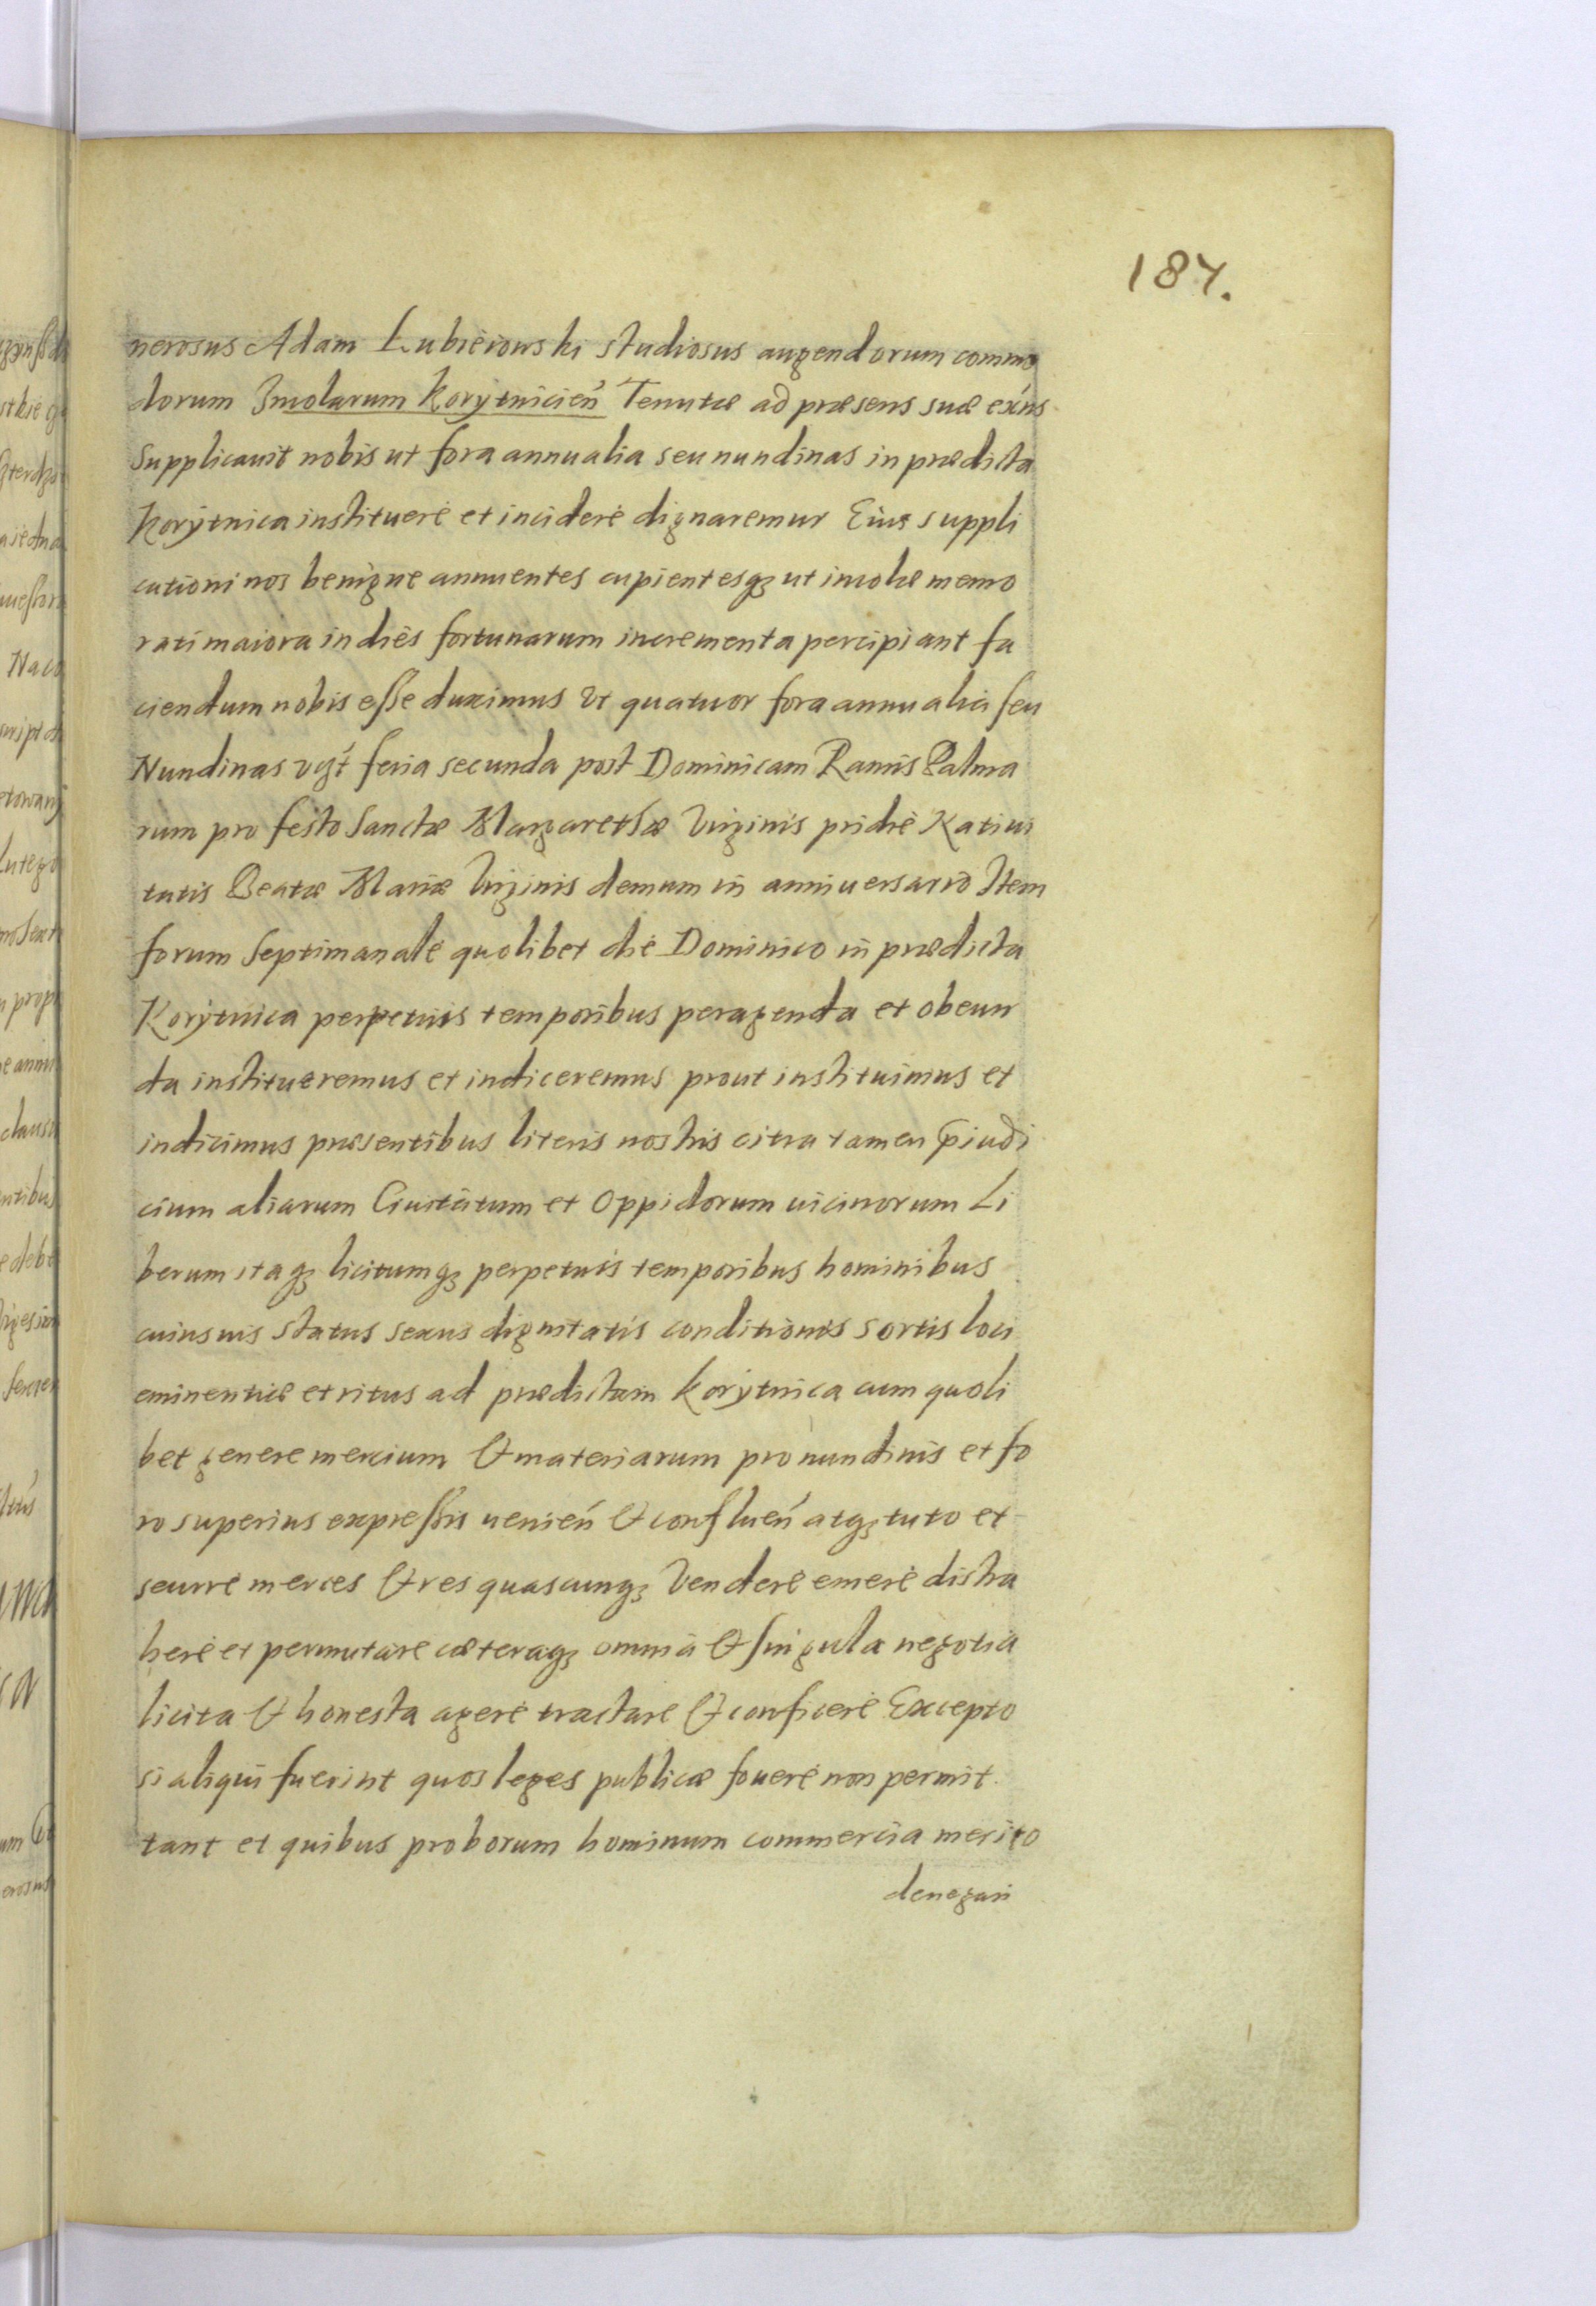 187.
nerosus Adam Lubieiowski studiosus augendorum commo
dorum Jncolarum Korytnicień Tenutæ ad præsens suæ exńs
Supplicauit nobis ut fora annualia seu nundinas in prædicta
Korÿtnica instituere et incidere dignaremur Eius suppli
cationi nos benigne annuentes cupientesqꝫ ut incolæ memo
rati maiora in dies fortunarum incrementa percipiant fa
ciendum nobis esse duximus Vt quatuor fora annualia seu
Nundinas vgt́ feria secunda post Dominicam Ramis Palma
rum pro festo Sanctæ Margarethæ Virginis pridie Natiui
tatis Beatæ Mariæ Virginis demum in anniuersario Item
forum Septimanale quolibet die Dominico in prædicta
Korÿtnica perpetuis temporibus peragenda et obeun
da institueremus et indiceremus prout instituimus et
indicimus præsentibus literis nostris citra tamen p̄iudi
cium aliarum Ciuitatum et Oppidorum uicinorum Li
berum itaqꝫ licitumqꝫ perpetuis temporibus hominibus
cuiusuis status sexus dignitatis conditionis sortis loci
eminentiæ et ritus ad prædictam Korÿtnica cum quoli
bet genere mercium & materiarum pro nundinis et fo
ro superius expressis uenień & conflueń atqꝫ tuto et
secure merces & res quascunqꝫ Vendere emere distra
here et permutare cæteraqꝫ omnia & singula negotia
licita & honesta agere tractare & conficere Excepto
si aliqui fuerint quos leges publicæ fouere non permit
tant et quibus proborum hominum commercia merito
denegari